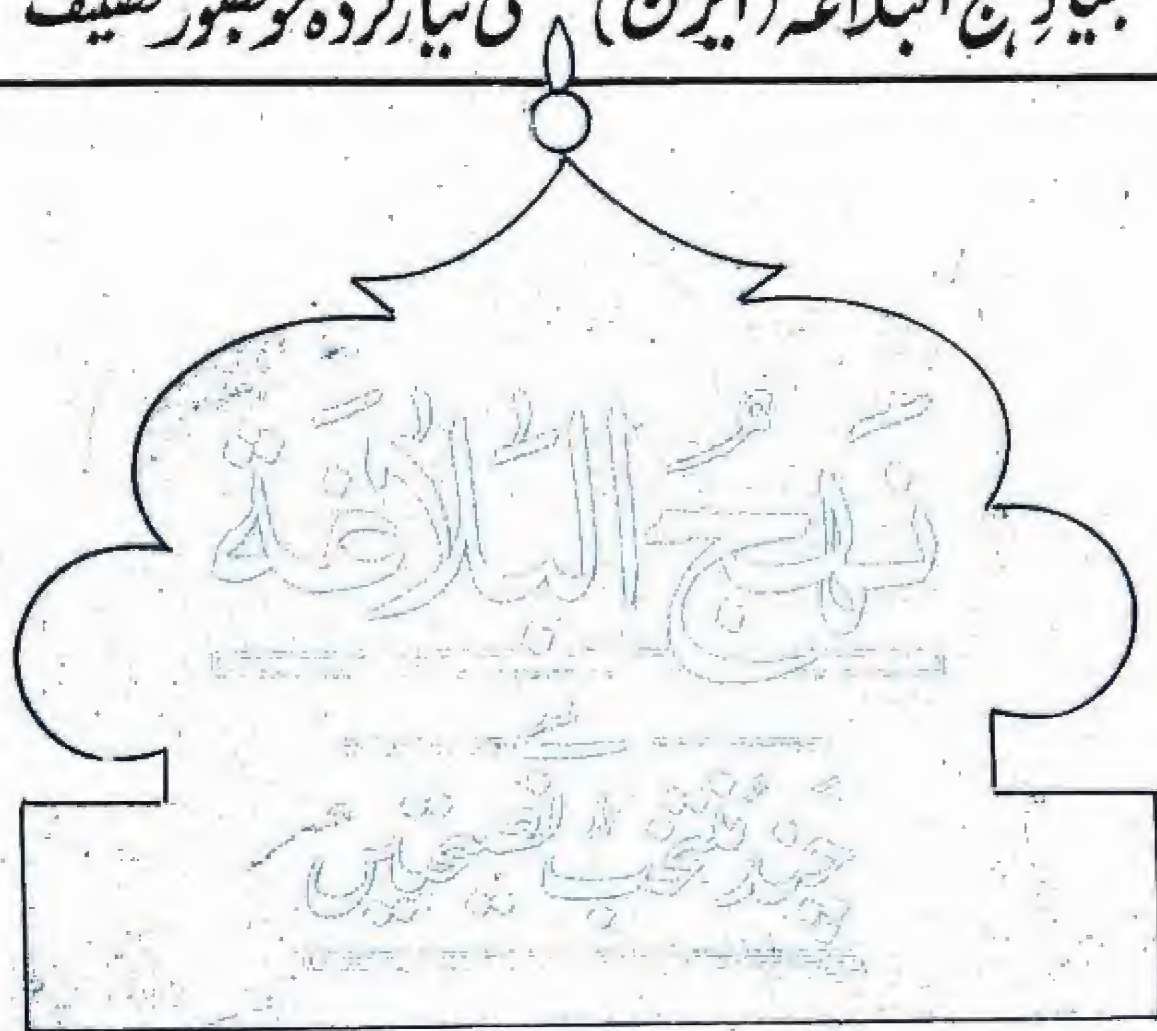 بنیادِ نہج البلاغہ (ایران) کی تیار کردہ خوبصورت تصنیف
نَہجُ البَلاغَة
کے
چند منتخب نصیحتیں